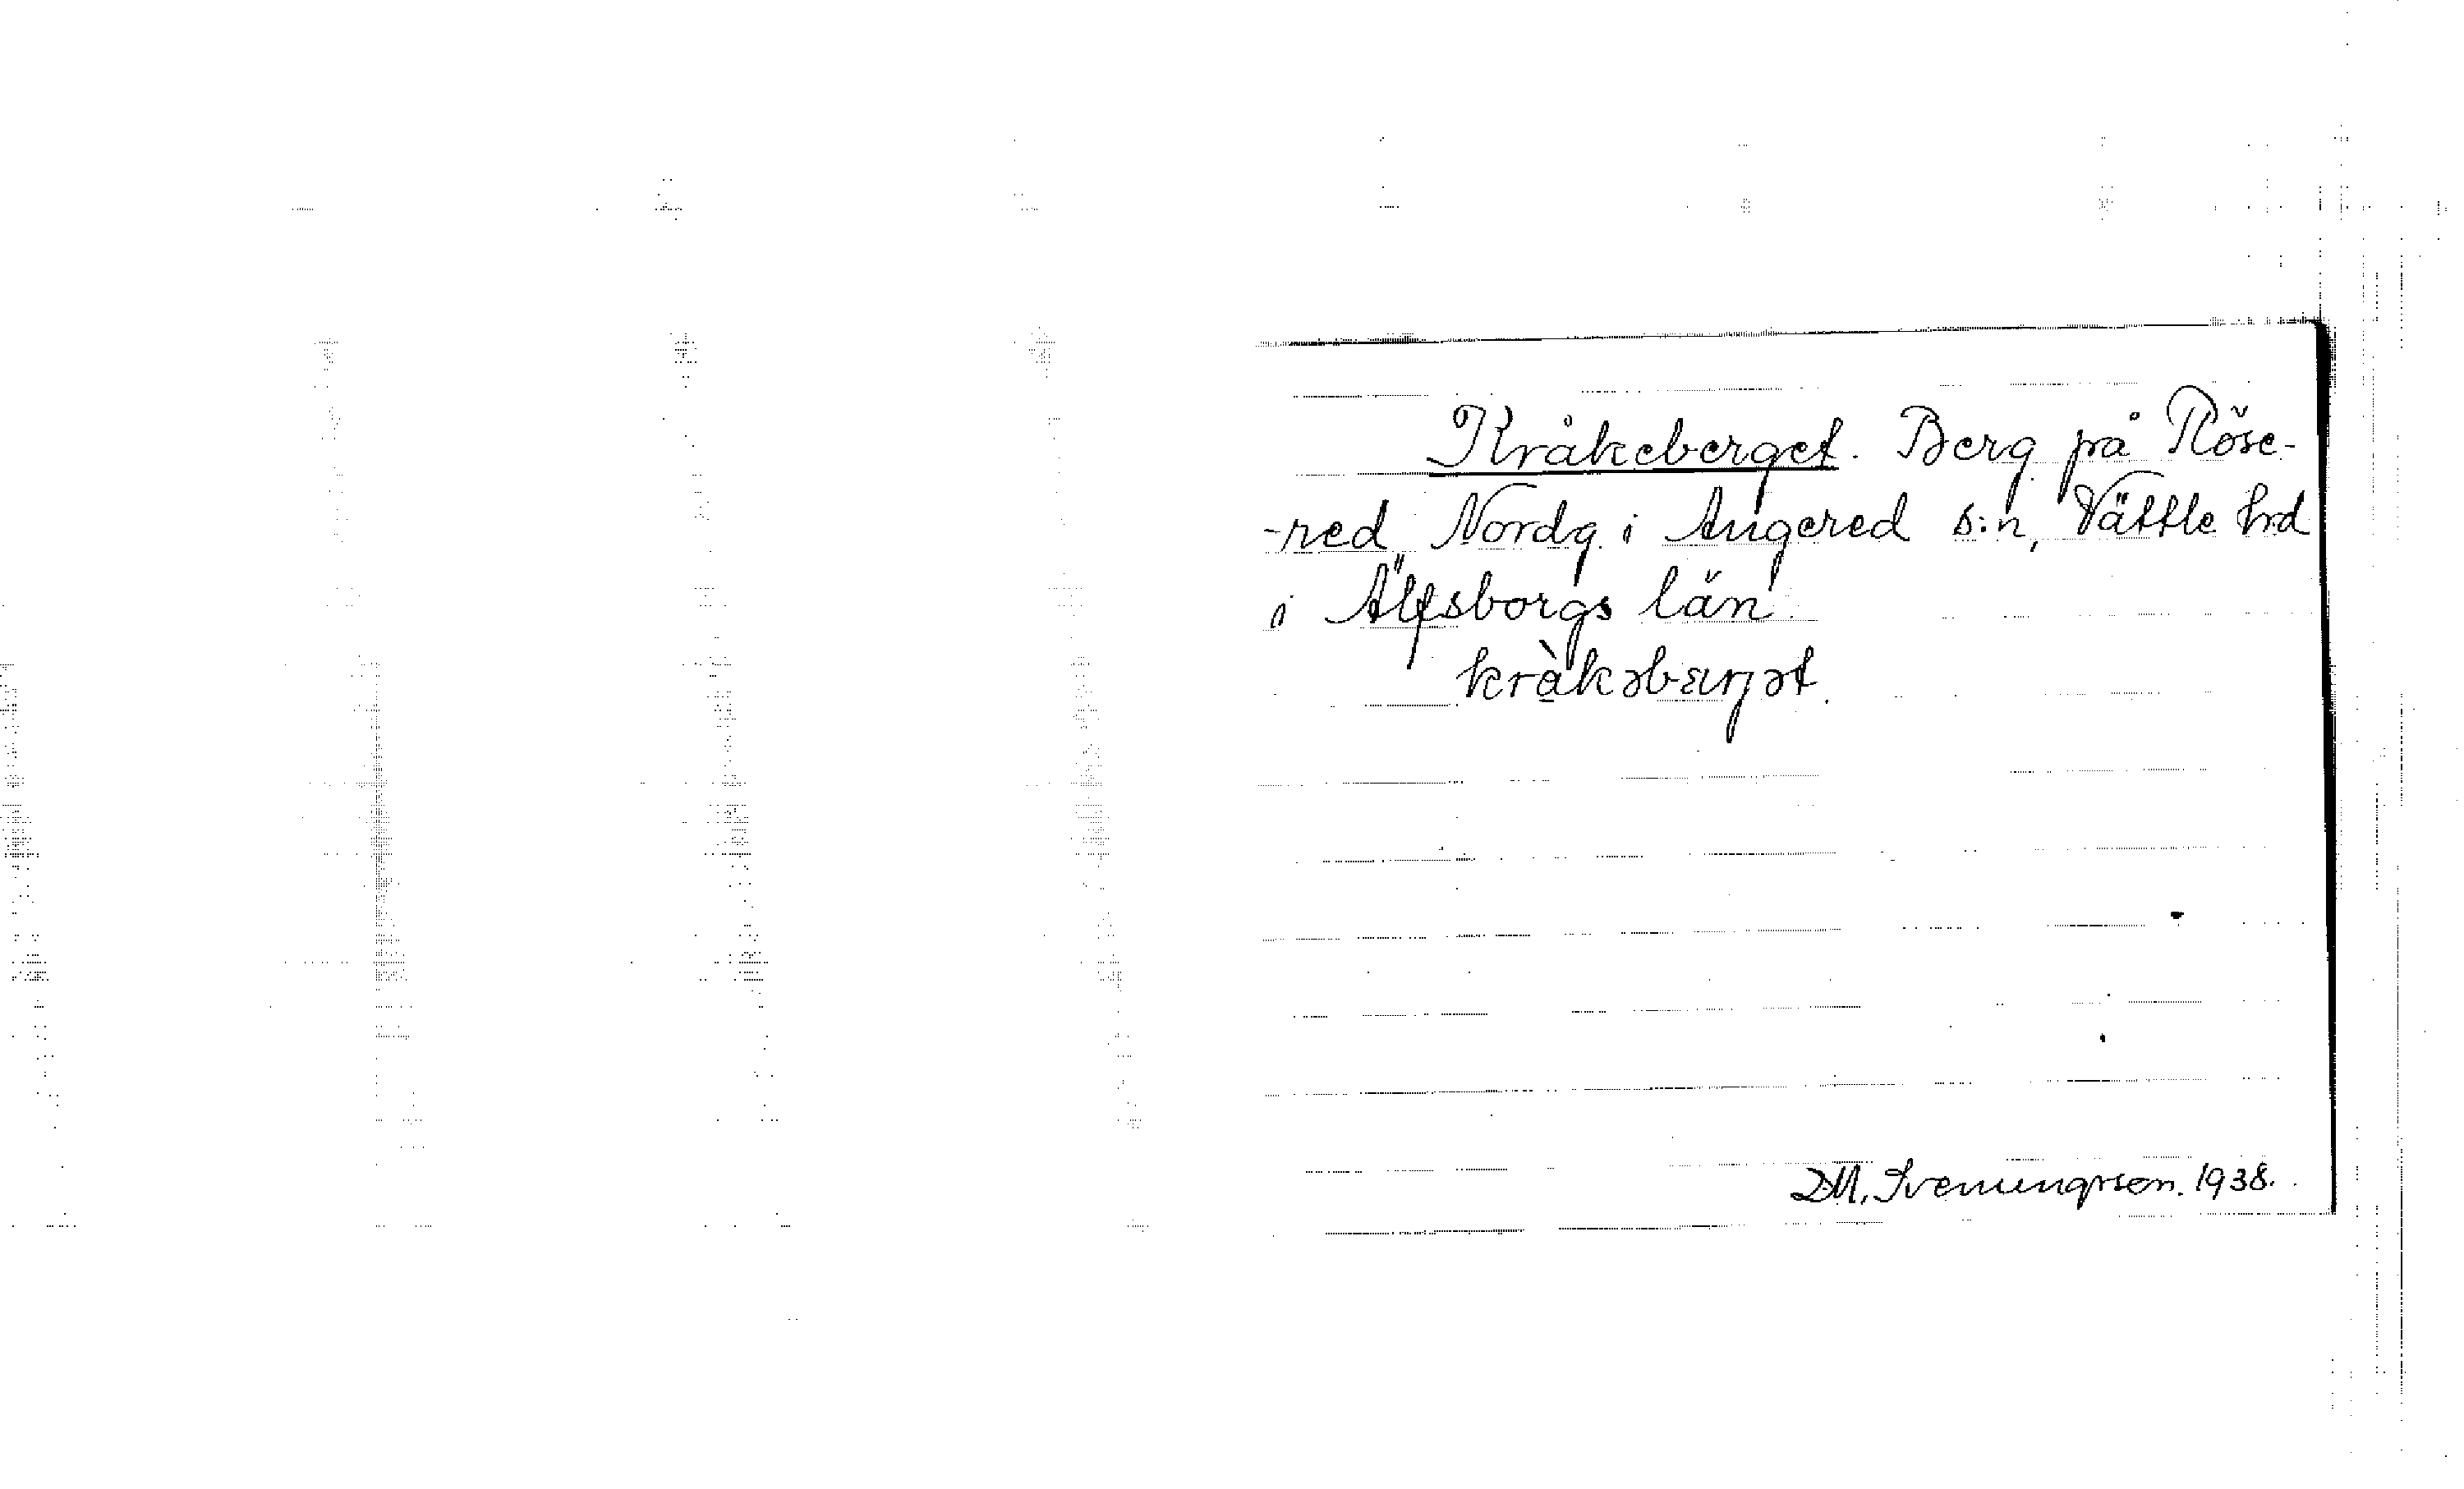 Kråkeberget. Berg på Röse-
-red Nordg. i Angered s:n, Vättle hrd
i Älfsborgs län.
kràkəbærjət.
D.M. Svenungsson. 1938.